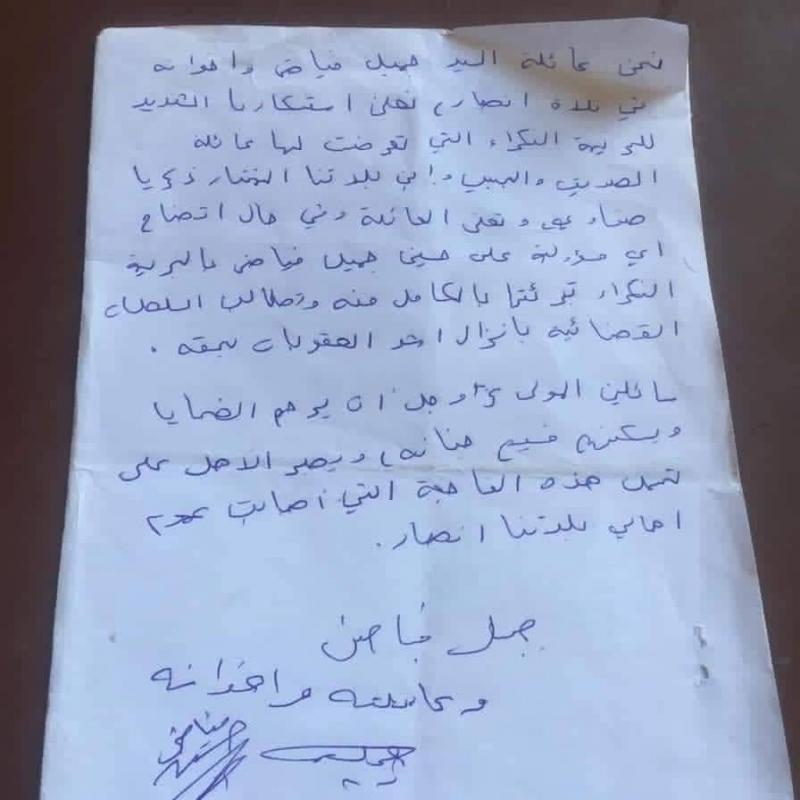 نحن عائلة السيد جميل فياض واخوانه
في بلدة انصار، نعلن استنكارنا الشديد
للجريمة النكراء التي تعرضت لها عائلة
الصديق والحبيب وابن بلدتنا المختار زكريا
صفاوي وتعلن العائلة وفي حال اتضاح
اي مسؤولية على حسين جميل فياض بالجريمة
النكراء تبرئتها بالكامل منه وتطالب السلطات
القضائية بانزال اشد العقوبات بحقه .
سائلين المولى عز وجل ان يرحم الضحايا
ويسكنهم فسيح جنانه، ويصبر الاهل على
تحمل هذه الفاجعة التي أصابت عموم
اهالي بلدتنا انصار.
جميل فياض
وعائلته واخوانه
فياض